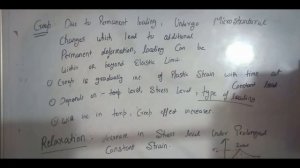 Creep Due to Permanent loading, Undergo Microstructural
Changes which lead to additional
Permanent deformation, loading Can be
within or beyond Elastic Limit
① Creep is gradually inc of Plastic Strain with time at Constant load
② Depends on - temp level, Stress Level, type of loading
③ With inc in temp, Creep effect increases.
Relaxation: decrease in Stress level Under Prolonged
Constant Strain.